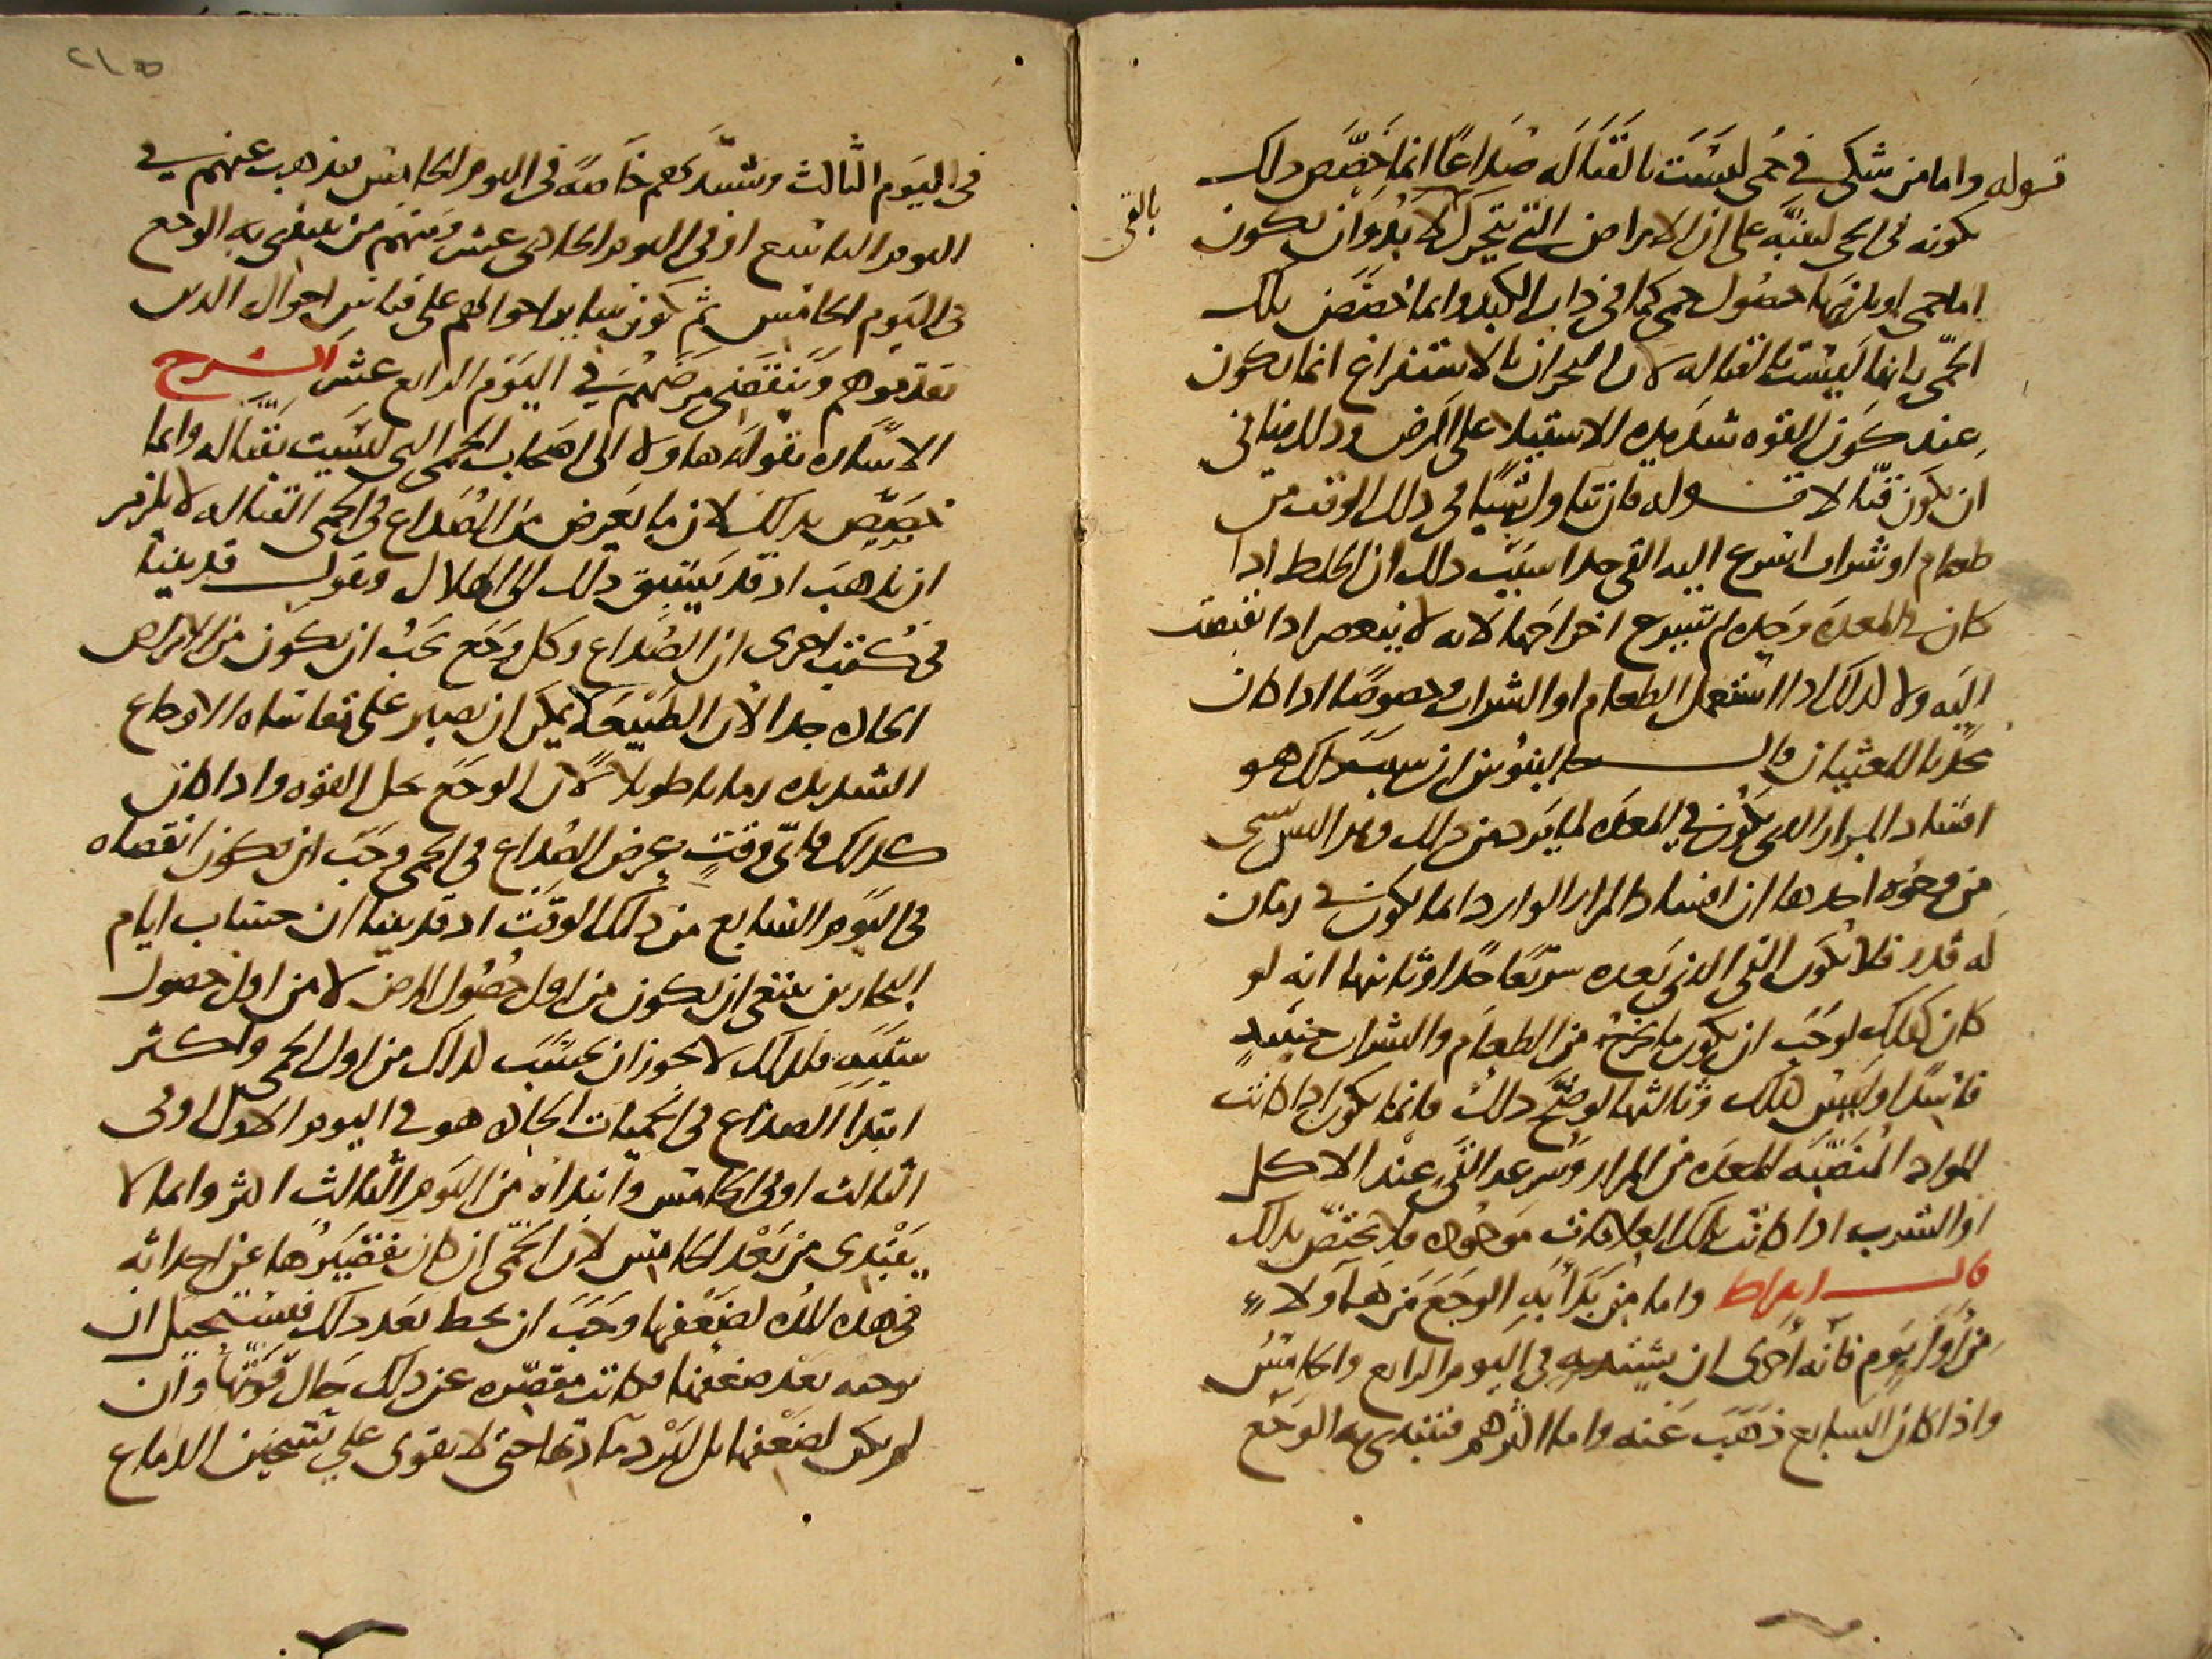 قوله واما من شكى في حمى ليست بالقتاله صداعا انما خصص ذلك
بكونه في الحمى لينبه على ان الامراض التي يتحرك لا بد وان يكون
بالقى
اما حمى او يلزمها حصول حمى كما في ذات الكبد وانما خصص تلك
الحمى بانها ليست بالقتاله لان البحران بالاستفراغ انما يكون
عند كون القوه شديده الاستيلا على المرض وذلك ينافي
ان يكون قتالا قوله فان تناول شيئا في ذلك الوقت من
طعام او شراب اسرع اليه القى جدا سبب ذلك ان الخلط اذا
كان في المعده وحده لم تسرع اخراجها لانه لا ينعصر اذا انقبضت
اليه ولا كذلك اذا استعمل الطعام او الشراب وخصوصا اذا كان
محدثا للغثيان قال جالينوس ان سبب ذلك هو
افساد المرار الذي يكون في المعده لما يرد من ذلك وهذا ليس بشى
من وجوه احدها ان افساد المرار الوارد انما يكون في زمان
له قدر فلا يكون القى الذي بعده سريعا جدا وثانيها انه لو
كان كذلك لوجب ان يكون ما يخرج من الطعام والشراب حينيد
فاسدا وليس كذلك وثالثها لو صح ذلك فانما يكون اذا كانت
المواد المنصبه للمعده من المرار وسرعه القى عند الاكل
او الشرب اذا كانت تلك العلامات موجوده فلا يختص بذلك
قال ابقراط واما من بدا به الوجع من هاولاء
من اول يوم فانه احرى ان يشتد به في اليوم الرابع والخامس
واذا كان السابع ذهب عنه واما اكثرهم فيبتدى به الوجع
في اليوم الثالث ويشتد بهم خاصة في اليوم الخامس ثم يذهب عنهم في
اليوم التاسع او في اليوم الحادى عشر ومنهم من يبتدى به الوجع
في اليوم الخامس ثم يكون ساير احوالهم على قياس احوال الذين
تقدموهم وينقضى مرضهم في اليوم الرابع عشر الشرح
الاشاره بقوله هاولا الى اصحاب الحمى التي ليست بقتاله وانما
خصص بذلك لان ما يعرض من الصداع في الحمى القتاله لا يلزم
ان يذهب اذ قد يسبق ذلك الى الهلاك ونقول قد بينا
في كتب اخرى ان الصداع وكل وجع يجب ان يكون من الامراض
الحاده جدا لان الطبيعه لا يمكن ان تصبر على مقاساه الاوجاع
الشديده زمانا طويلا لان الوجع يحل القوه واذا كان
كذلك فاى وقت يعرض الصداع في الحمى وجب ان يكون انقضاه
في اليوم السابع من ذلك الوقت اذ قد بينا ان حساب ايام
البحارين ينبغى ان يكون من اول حصول المرض لا من اول حصول
سببه فلذلك لا يجوز ان يحسب لذلك من اول الحمى واكثر
ابتدا الصداع في الحميات الحاده هو في اليوم الاول او في
الثالث او في الخامس وابتداه من اليوم الثالث اكثر وانما لا
يبتدى من بعد الخامس لان الحمى ان كان تقصيرها عن احداثه
في هذه المده لضعفها وجب ان ينحط بعد ذلك فيستحيل ان
توجبه بعد ضعفها وكانت مقصره عن ذلك حال قوتها وان
لم يكن لضعفها بل لبرد مادتها حتى لا يقوى على تسخين الدماغ